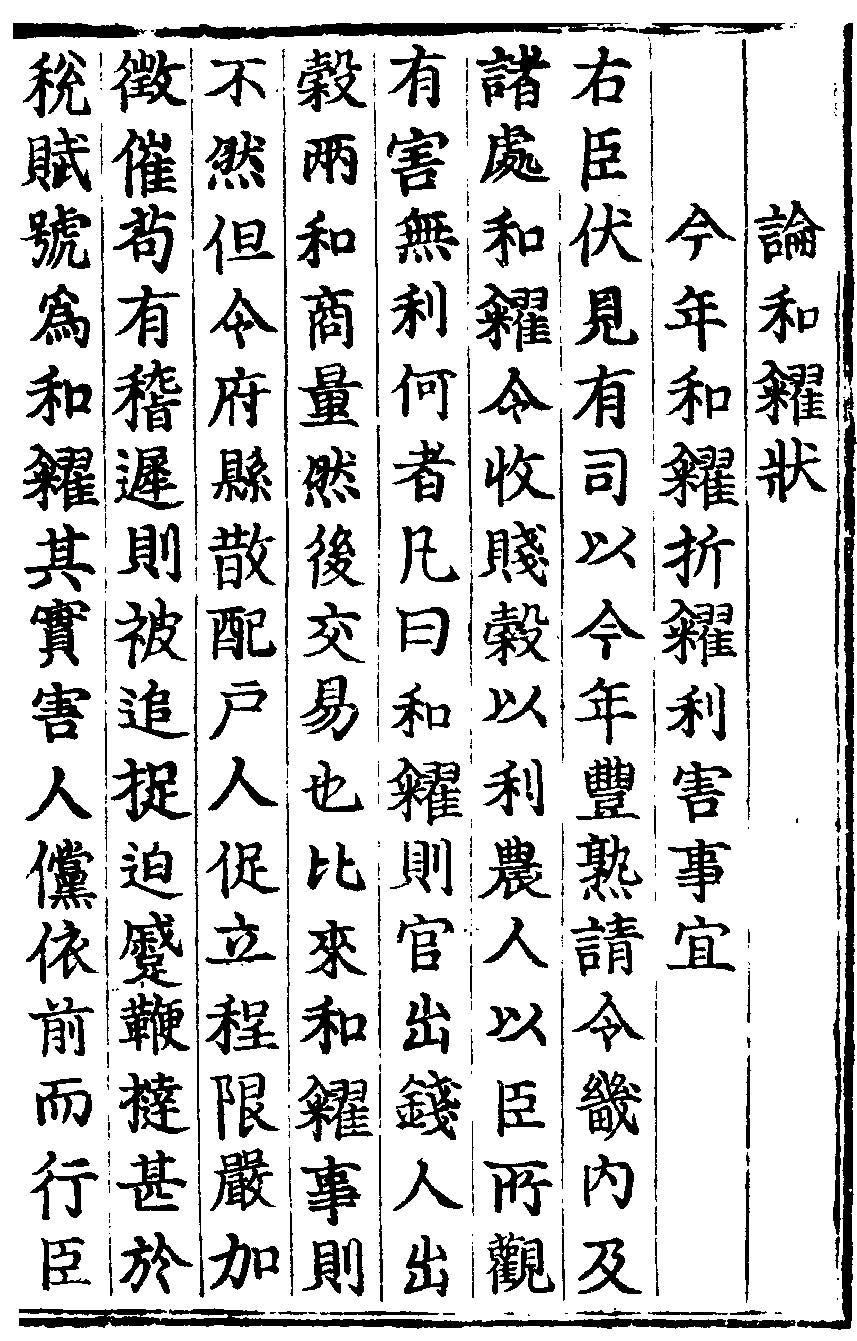 論和糴狀
今年和糴折糴利害事宜
右臣伏見有司以今年豐熟請令畿內及
諸處和糴令收賤榖以利農人以臣所觀
有害無利何者凡曰和糴則官出錢人出
榖兩和商量然後交易也比來和糴事則
不然但令府縣散配戶人促立程限嚴加
徵催苟有稽遲則被追捉迫蹙鞭撻甚於
稅賦號爲和糴其實害人儻依前而行臣